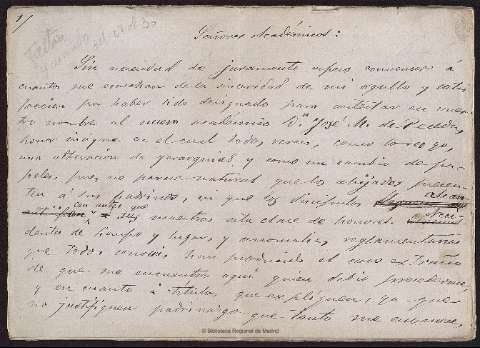 1/
Señores Académicos:
Sin necesidad de juramento espero convencer a
cuantos me escuchan de la sinceridad de mi orgullo y satis-
facción por haber sido designado para contestar en vuestro
nombre al nuevo académico D. José M. de Pereda,
honor insigne en el cual todos verán, como lo veo yo,
una alteración de jerarquías, y como un cambio de pa-
peles, pues no parece natural que los ahijados presen-
ten a sus padrinos, ni que los discípulos
con
maestros esta clase de honores.
dentes de tiempo y lugar, y anomalías reglamentarias
que todos conocéis, han producido el caso extraño
de que me encuentre aquí quien debió precederme,
y en cuanto a títulos que expliquen, ya que
no justifiquen padrinazgo que tanto me envanece,
© Biblioteca Regional de Madrid